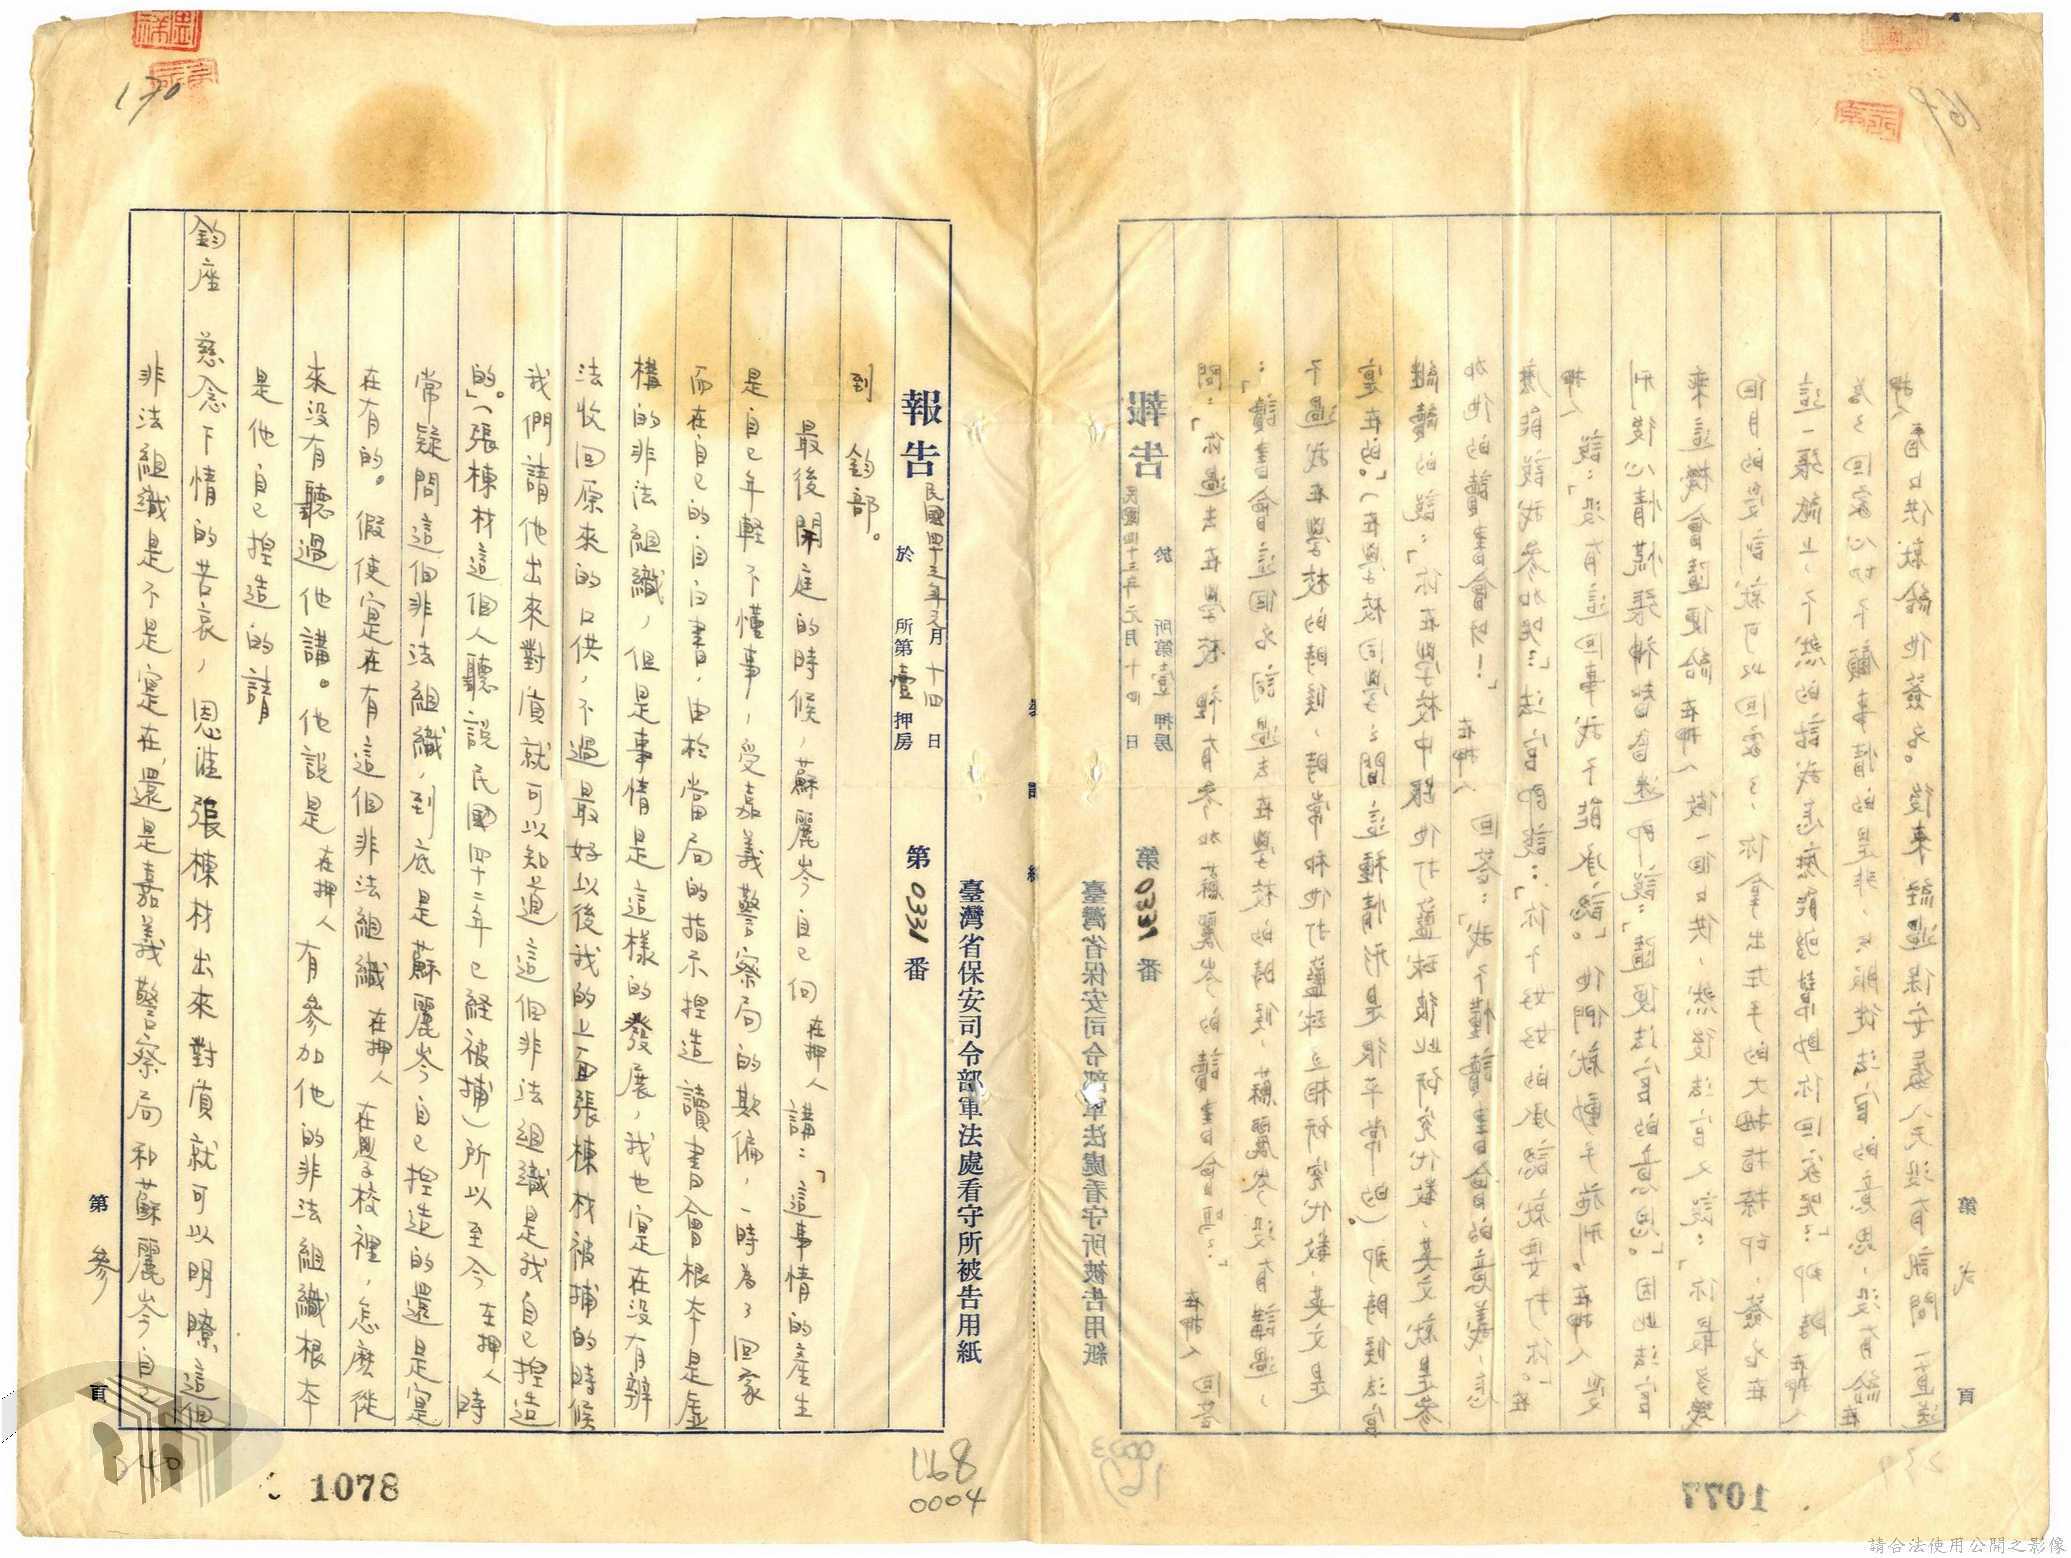 臺灣省保安司令部軍法處看守所被告用紙
報告 民國四十三年元月十四日 於 所第壹押房 第0331番
到 鈞部。
最後開庭的時候，蘇麗岑自己向在押人講：「這事情的產生
是自己年軽不懂事，受嘉義警察局的欺偏，一時為了回家
而在自己的自白書，由於當局的指示揑造讀書會根本是虛
構的非法組織，但是事情是這樣的發展，我也寔在没有辦
法收回原來的口供，不過最好以後我的上面張棟材被捕的時候
我們請他出來對质就可以知道這個非法組織是我自己揑造
的」。(張棟材這個人聽説民國四十二年已経被捕)所以至今在押人時
常疑問這個非法組織，到底是蘇麗岑自己揑造的還是寔
在有的。假使寔在有這個非法組織在押人在學校裡，怎麽從
來没有聽過他講。他説是在押人有參加他的非法組織根本
是他自己揑造的請
鈞座 慈念下情的苦哀，恩准張棟材出來對质就可以明瞭這個
非法組織是不是寔在，還是嘉義警察局和蘇麗岑自己
第 參 頁
170
340
1078
168
0004
臺灣省保安司令部軍法處看守所被告用紙
報告 民國四十三年元月十四日 於 所第壹押房 第0331番
問：「你過去在學校裡有參加蘇麗岑的讀書會嗎？」在押人回答
：「讀書會這個名詞過去在學校的時候，蘇麗岑没有講過，
不過我在學校的時候，時常和他打籃球互相研究代数，英文是
寔在的」。(在學校同學之間這種情形是很平常的)。那時候法官
継續的説：「你在學校中跟他打籃球彼此研究代数，英文就是參
加他的讀書會呀！」在押人回答：「我不懂讀書會的意義，怎
麽能説我參加呢？」法官即説：「你不好好的承認就要打你」。在
押人説：「没有這回事我不能承認」。他們就動手施刑。在押人受
刑後心情慌張神智昏迷即説：「隨便法官的意思」。因此法官
乘這機會隨便給在押人做一個口供，然後法官又説：「你最多幾
個月的受訓就可以回家了，你拿出左手的大拇指捺印，簽名在
這一張紙上，不然的話我怎麽能够幫助你回家呢？」那時在押人
為了回家心切不顧事情的是非，只服從法官的意思，没有給在
押人看口供就給他簽名。後來経過保安處八天没有訊問一直送
第 弍 頁
169
1077
0003
167
239
請合法使用公開之影像